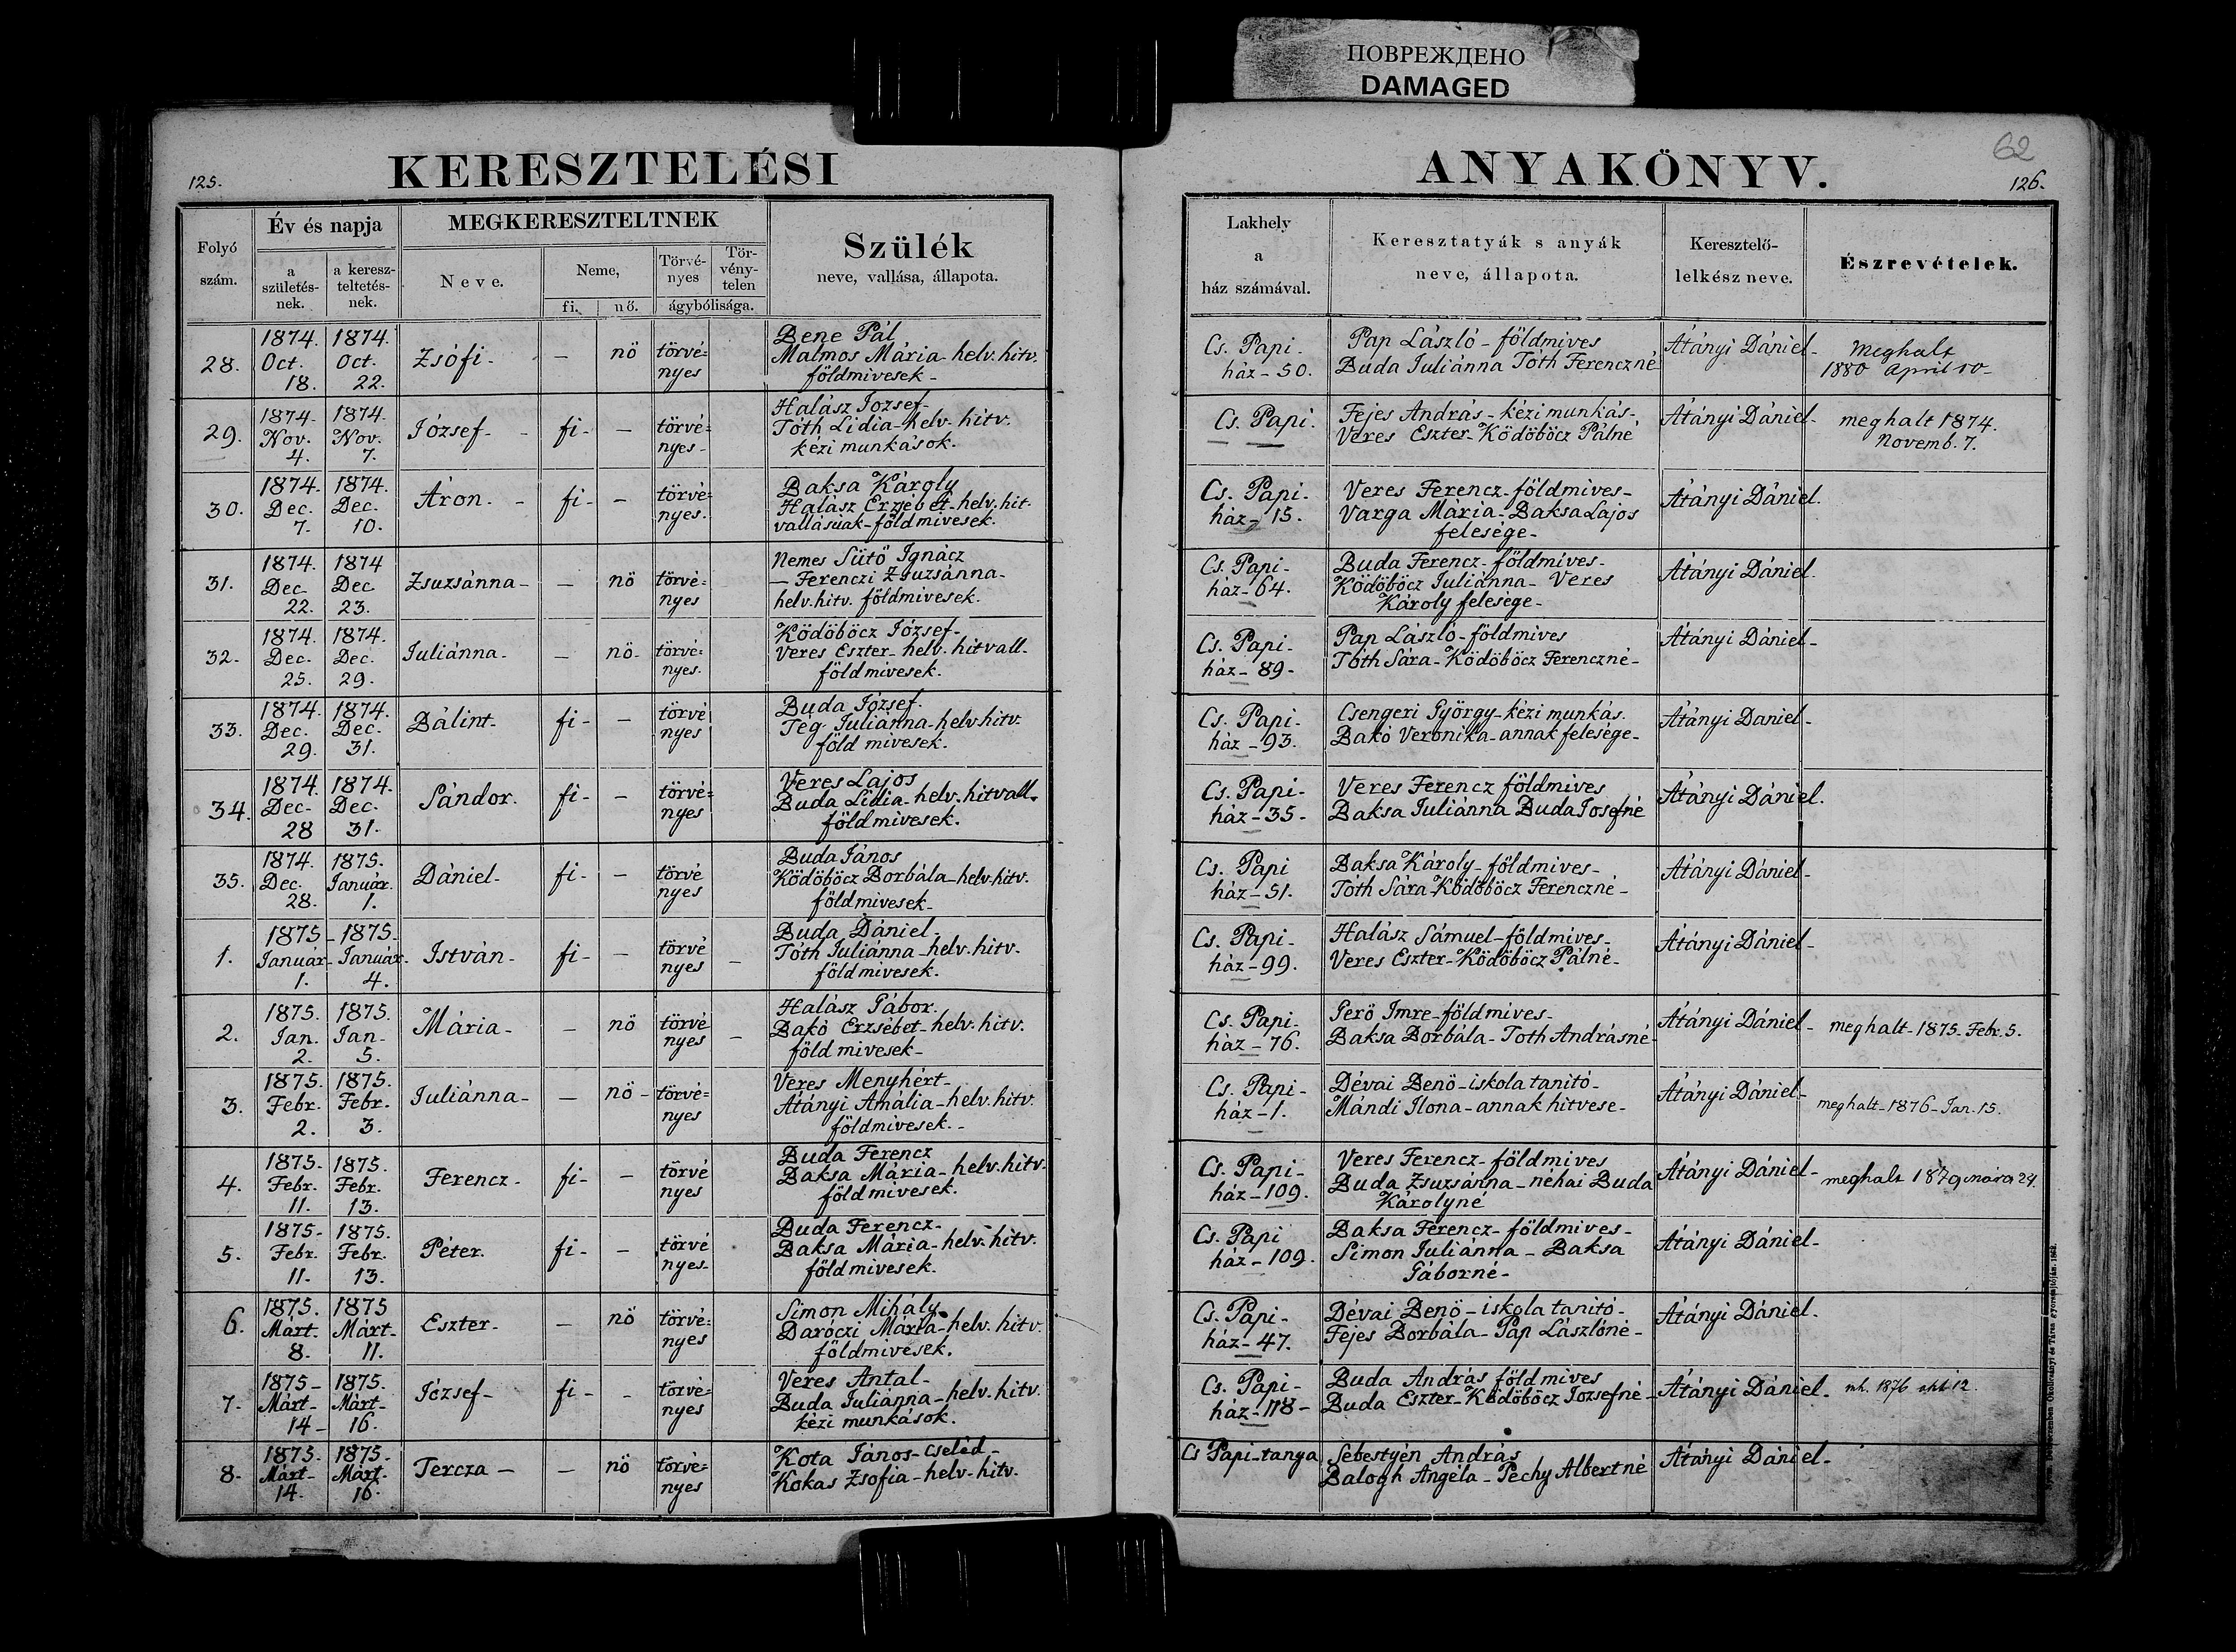 ПОВРЕЖДЕНО
DAMAGED
62
125.
KERESZTELÉSI
ANYAKÖNYV.
126.
Folyó szám.
Év és napja
a születés-nek.
a keresz-teltetés-nek.
MEGKERESZTELTNEK
Neve.
Neme,
fi.
nő.
Törvé-nyes
Tör-vény-telen
ágybólisága.
Szülék
neve, vallása, állapota.
Lakhely
a
ház számával.
Keresztatyák s anyák
neve, állapota.
Keresztelő-
lelkész neve.
Észrevételek.
28. 1874. Oct. 18. 1874. Oct. 22. Zsófi - — nö törvé=nyes
Bene Pál
Malmos Mária - helv. hitv.
földmivesek -
Cs. Papi -
ház - 50.
Pap László - földmives
Buda Juliánna Tóth Ferenczné
Átányi Dániel -
Meghalt
1880 April 10 -
29. 1874 - Nov. 4. 1874. Nov. 7. József - fi - — törvé=nyes -
Halász Jozsef -
Tóth Lidia - helv. hitv.
kézi munkások.
Cs. Papi.
Fejes András - kézi munkás -
Veres Eszter - Ködöböcz Pálné
Átányi Dániel -
meghalt 1874.
Novemb. 7.
30. 1874 - Dec. 7. 1874. Dec. 10. Áron. - fi - — törvé=nyes.
Baksa Károly
Halász Erzsébet - helv. hit-
vallásuak - földmivesek.
Cs. Papi -
ház - 15.
Veres Ferencz - földmives -
Varga Mária - Baksa Lajos
felesége -
Átányi Dániel.
31. 1874. Dec - 22. 1874 Dec 23. Zsuzsánna - — nö törvé=nyes
Nemes Sütö Ignácz
— Ferenczi Zsuzsánna -
helv. hitv. földmivesek.
Cs. Papi -
ház - 64.
Buda Ferencz - földmives -
Ködöböcz Juliánna - Veres
Károly felesége -
Átányi Dániel.
32. 1874. Dec. 25. 1874. Dec. 29. Juliánna - — nö - törvé=nyes.
Ködöböcz József -
Veres Eszter - helv. hitvall.
földmivesek.
Cs. Papi -
ház - 89 -
Pap László - földmives
Tóth Sára - Ködöböcz Ferenczné -
Átányi Dániel -
33. 1874. Dec. 29. 1874. Dec. 31. Bálint - fi - — törvé nyes
Buda József.
Tég Juliánna - helv hitv.
föld mivesek.
Cs. Papi -
ház - 93.
Csengeri György - kézi munkás.
Bakó Veronika - annak felesége -
Átányi Daniel -
34. 1874. Dec - 28 1874. Dec. 31. Sándor. fi - — törvé=nyes
Veres Lajos
Buda Lidia - helv. hitvall.
földmivesek.
Cs. Papi -
ház - 35 -
Veres Ferencz földmives
Baksa Juliánna Buda Josefné
Átányi Dániel.
35. 1874. Dec. 28. 1875. Január. 1. Dániel - fi - — törvé nyes
Buda János
Ködöböcz Borbála - helv. hitv.
földmivesek -
Cs. Papi
ház - 51.
Baksa Károly - földmives -
Tóth Sára Ködöböcz Ferenczné -
Átányi Dániel -
1. 1875 - Január - 1. 1875 - Január. 4. István - fi - — törvé nyes —
Buda Dániel -
Tóth Juliánna - helv. hitv.
földmivesek.
Cs. Papi -
ház - 99.
Halász Sámuel - földmives -
Veres Eszter - Ködöböcz Pálné -
Átányi Dániel -
2. 1875. Jan. 2. 1875. Jan - 5. Mária - — nö törvé nyes —
Halász Gábor.
Bakó Erzsébet - helv. hitv.
föld mivesek -
Cs. Papi -
ház - 76.
Gerö Imre - földmives -
Baksa Borbála - Toth Andrásné -
Átányi Dániel -
meghalt - 1875. Febr. 5.
3. 1875. Febr. 2. 1875. Febr. 3. Juliánna - — nö - törvé=nyes
Veres Menyhért -
Átányi Amália - helv. hitv.
földmivesek. -
Cs. Papi -
ház - 1.
Dévai Benö - iskola tanitó -
Mándi Ilona - annak hitvese -
Átányi Dániel -
meghalt - 1876 - Jan. 15.
4. 1875 - Febr. 11. 1875. Febr. 13. Ferencz - fi - — törvé nyes
Buda Ferencz
Baksa Mária - helv. hitv.
földmivesek.
Cs. Papi -
ház - 109.
Veres Ferencz - földmives
Buda Zsuzsánna - néhai Buda
Károlyné
Átányi Dániel -
meghalt 1879 24.
5. 1875 - Febr. 11. 1875. Febr. 13. Péter. fi - — törvé nyes -
Buda Ferencz -
Baksa Mária - helv. hitv.
földmivesek.
Cs. Papi
ház - 109.
Baksa Ferencz - földmives -
Simon Juliánna - Baksa
Gáborné -
Átányi Dániel -
6. 1875. Márt - 8. 1875 Márt - 11. Eszter - — nö törvé=nyes
Simon Mihály
Daróczi Mária - helv. hitv.
földmivesek.
Cs. Papi -
ház - 47.
Dévai Benö - iskola tanitó -
Fejes Borbála - Pap Lászlóné -
Átányi Dániel -
7. 1875 - Márt - 14 - 1875. Márt - 16. József - fi - - törvé=nyes
Veres Antal -
Buda Juliánna - helv. hitv.
kézi munkások.
Cs. Papi -
ház - 118 -
Buda András földmives
Buda Eszter - Ködöböcz Jozsefné -
Átányi Dániel -
mh. 1876 okt 12.
8. 1875. Márt - 14. 1875. Márt. 16. Tercza - — nö törvé=nyes
Kota János - cseléd -
Kokas Zsofia - helv - hitv.
Cs Papi - tanya
Sebestyén András
Balogh Angéla - Pechy Albertné
Átányi Dániel -